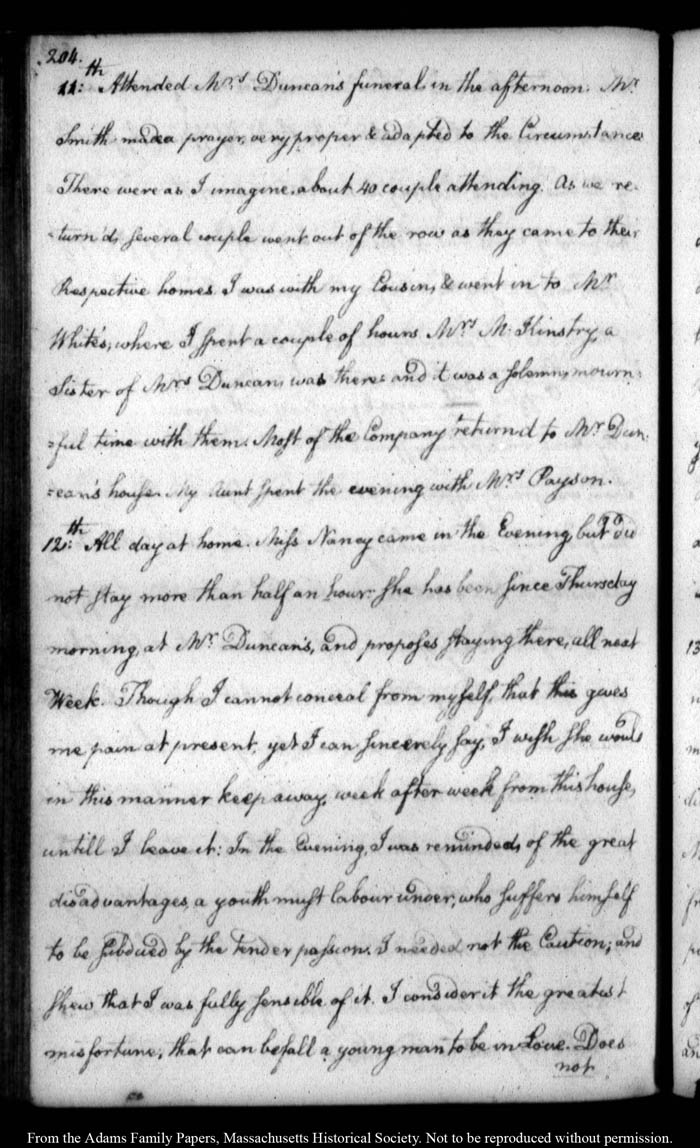 204.
11:th Attended Mrs Duncan's funeral in the afternoon. Mr
Smith made a prayer, very proper & adapted to the Circumstances
There were as I imagine, about 40 couple attending. As we re-
=turn'd, several couple went out of the row as they came to their
Respective homes. I was with my Cousin, & went in to Mr
White's, where I spent a couple of hours. Mrs M:Kinstry, a
Sister of Mrs Duncan, was there: and it was a solemn, mourn-
=ful time with them. Most of the Company return'd to Mr Dun-
=can's house. My Aunt spent the evening with Mrs Payson.
12:th All day at home. Miss Nancy came in the Evening, but did
not stay more than half an hour: She has been since Thursday
morning, at Mr Duncan's, and proposes staying there, all next
Week. Though I cannot conceal from myself, that this gives
me pain at present, yet I can sincerely say, I wish she would
in this manner keep away, week after week from this house,
untill I leave it: In the Evening, I was reminded, of the great
disadvantages, a youth must labour under, who suffers himself
to be subdued by the tender passion. I needed not the Caution; and
shew that I was fully sensible of it. I consider it the greatest
misfortune, that can befall a young man to be in Love. Does
not
From the Adams Family Papers, Massachusetts Historical Society. Not to be reproduced without permission.